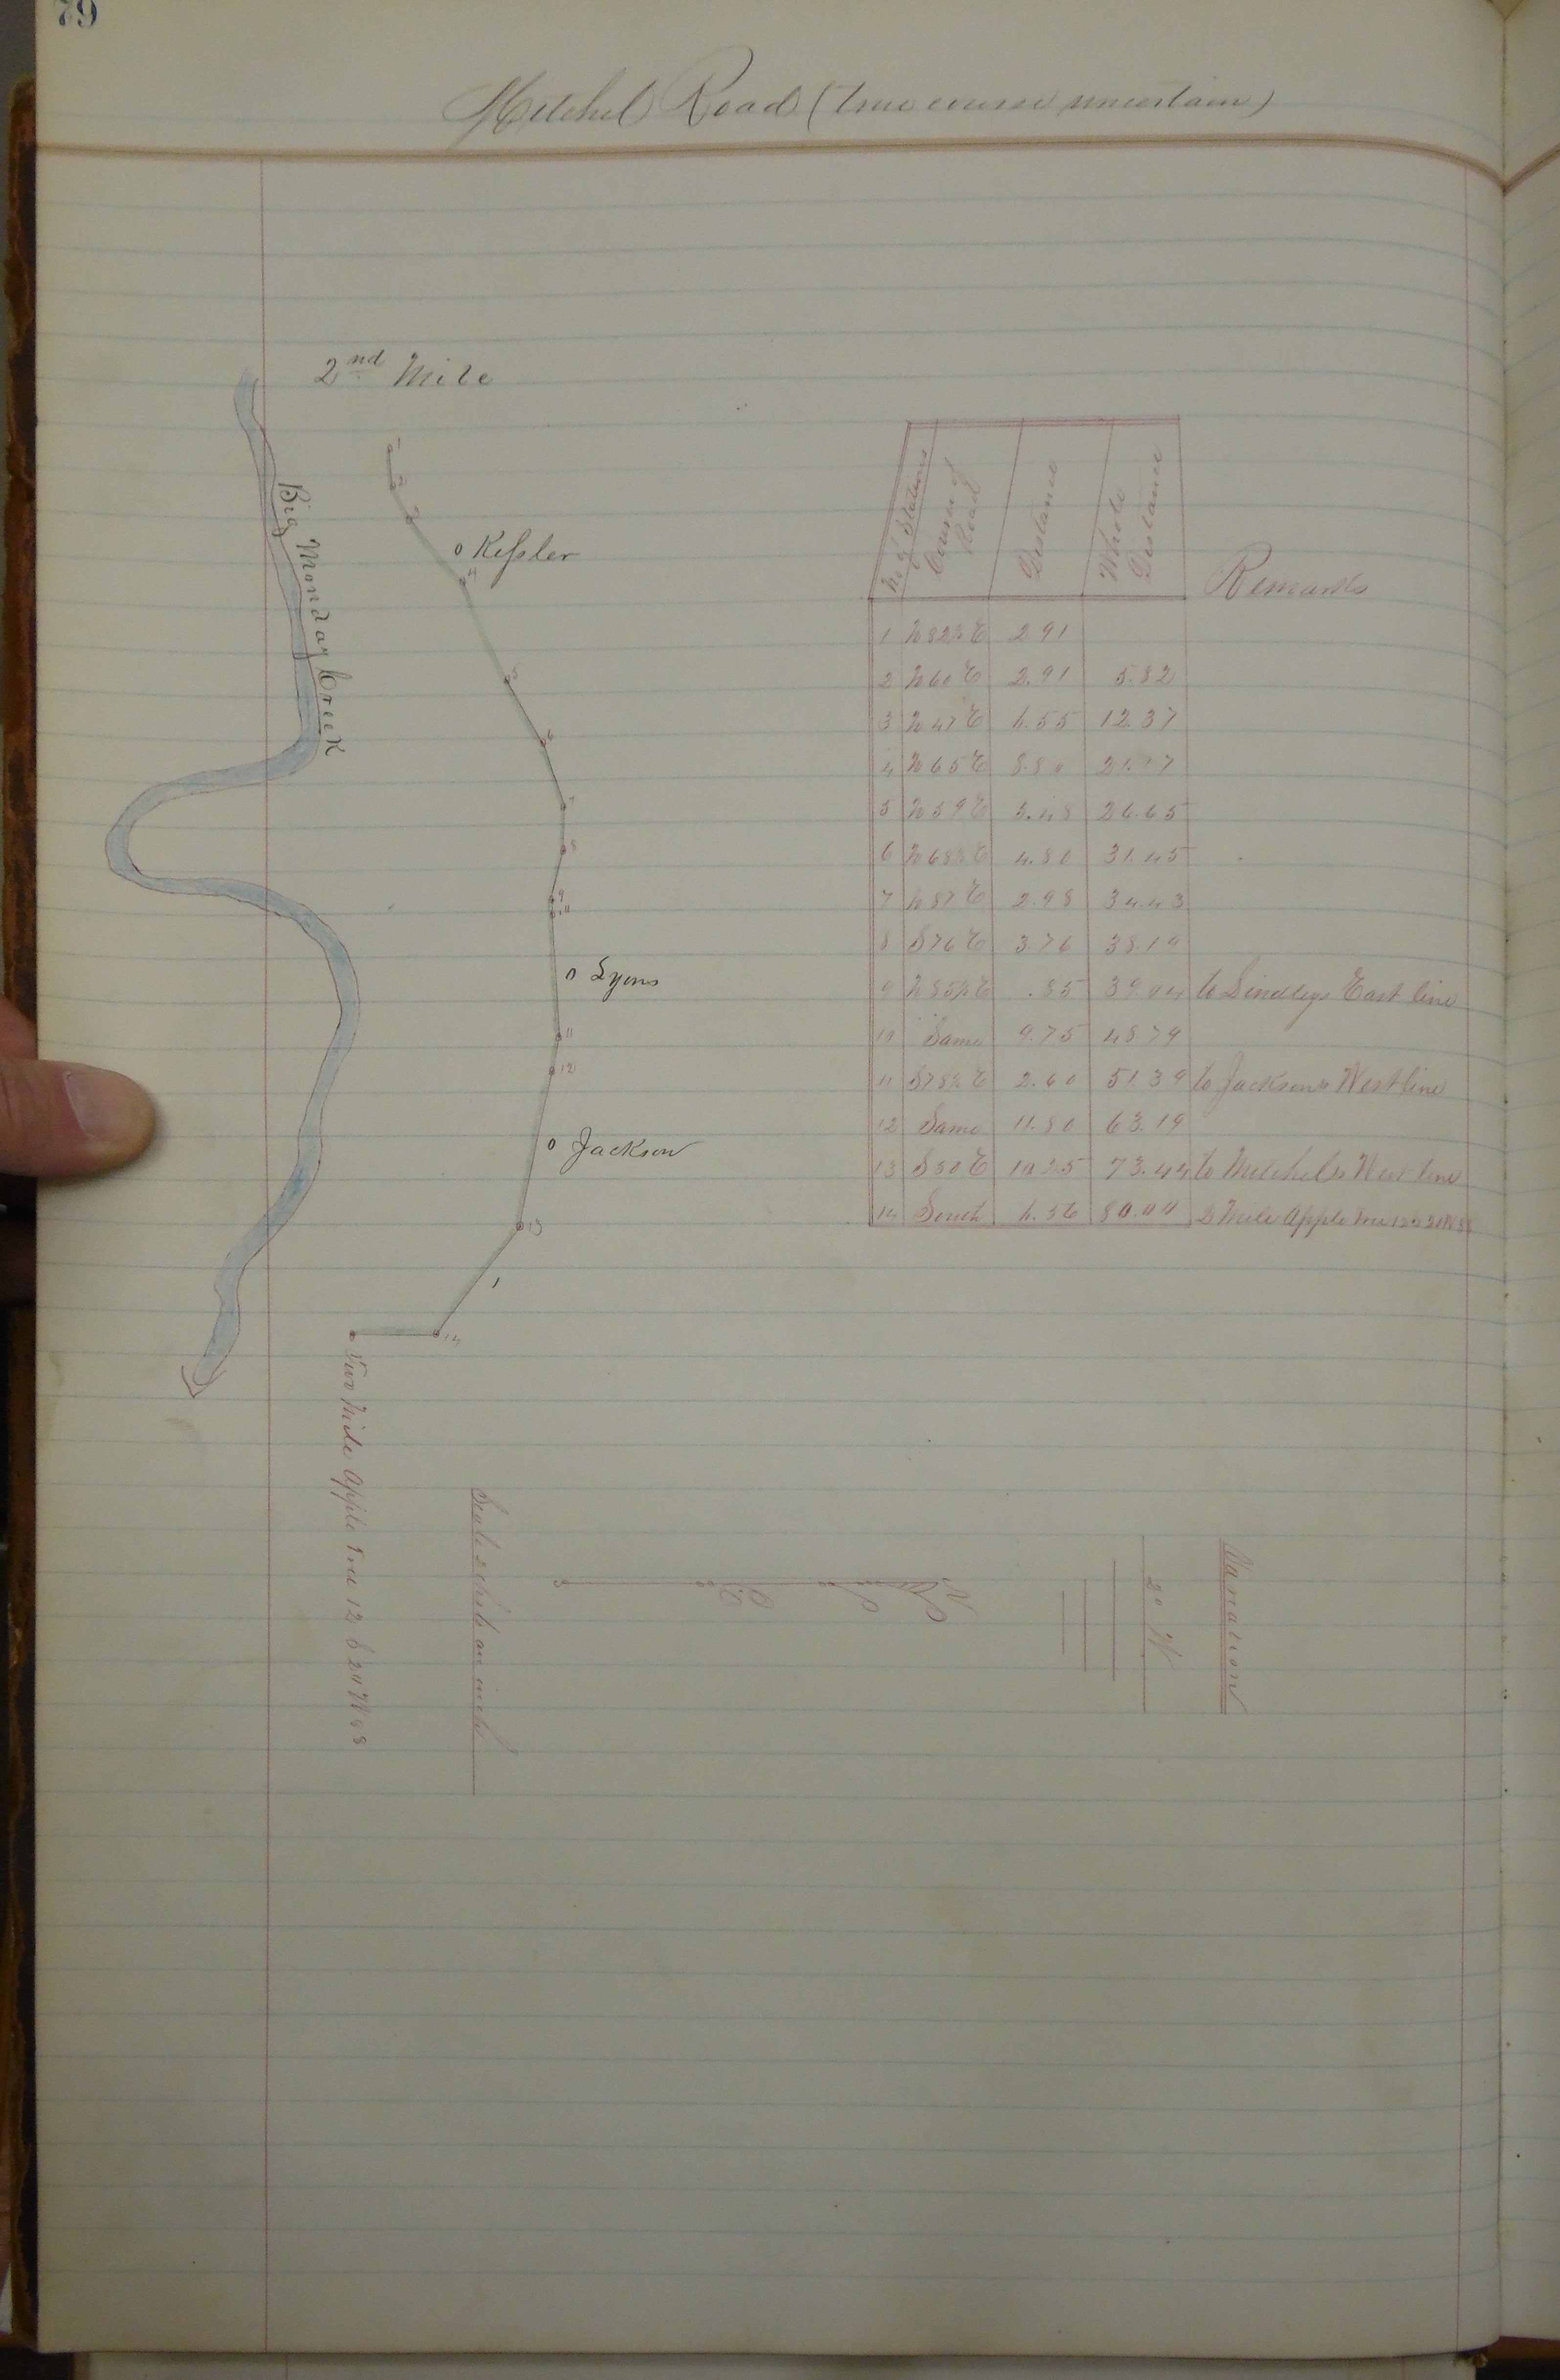 79
Mitchel Road (true course uncertain)
2nd Mile
Big Monday Creek
Kessler
Lyons
Jackson
1
2
3
4
5
6
7
8
9
11
12
13
14
Two Mile Apple Tree 12 S 20 W 88
Scale 5 chals an inch
Variation
2° W
N
S
No of Stations Course of Road Distance Whole Distance Remarks
1 N 82½ E 2.91
2 N 60 E 2.91 5.82
3 N 47 E 6.55 12.37
4 N 65 E 8.80 21.17
5 N 59 E 5.48 26.65
6 N 68½ E 4.80 31.45
7 N 87 E 2.98 34.43
8 S 76 E 3.76 38.19
9 N 85½ E .85 39.04 to Lindleys East line
10 Same 9.75 48.79
11 S 78½ E 2.60 51.39 to Jackson's West line
12 Same 11.80 63.19
13 S 50 E 10.25 73.44 to Mitchel's West line
14 South 6.56 80.00 2 Mile Apple Tree 12 S 20 W 88